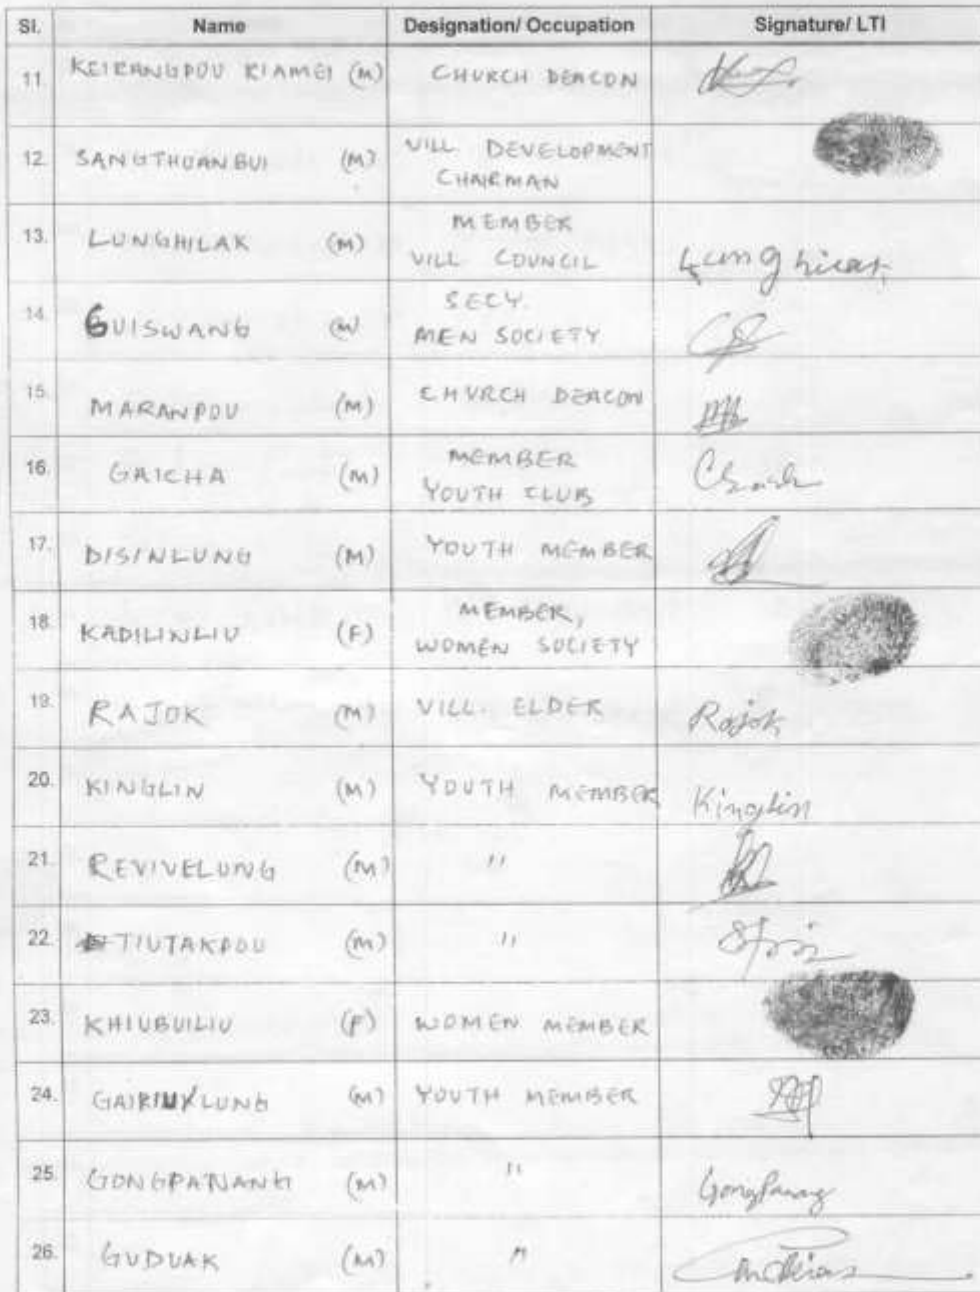 Sl. Name Designation/ Occupation Signature/ LTI
11. KEIRANGPOU RIAMEI (M) CHURCH DEACON
12. SANGTHUANBUI (M) VILL. DEVELOPMENT
CHAIRMAN
13. LUNGHILAK (M) MEMBER
VILL. COUNCIL Lunghilak
14. GUISWANG (M) SECY.
MEN SOCIETY
15. MARANPOU (M) CHURCH DEACON
16. GAICHA (M) MEMBER
YOUTH CLUB
17. DISINLUNG (M) YOUTH MEMBER
18. KADILINLIU (F) MEMBER,
WOMEN SOCIETY
19. RAJOK (M) VILL. ELDER Rajok
20. KINGLIN (M) YOUTH MEMBER Kinglin
21. REVIVELUNG (M) "
22. TIUTAKPOU (M) "
23. KHIUBUILIU (F) WOMEN MEMBER
24. (M) YOUTH MEMBER
25. GONGPANANG (M) "
26. GUDUAK (M) "